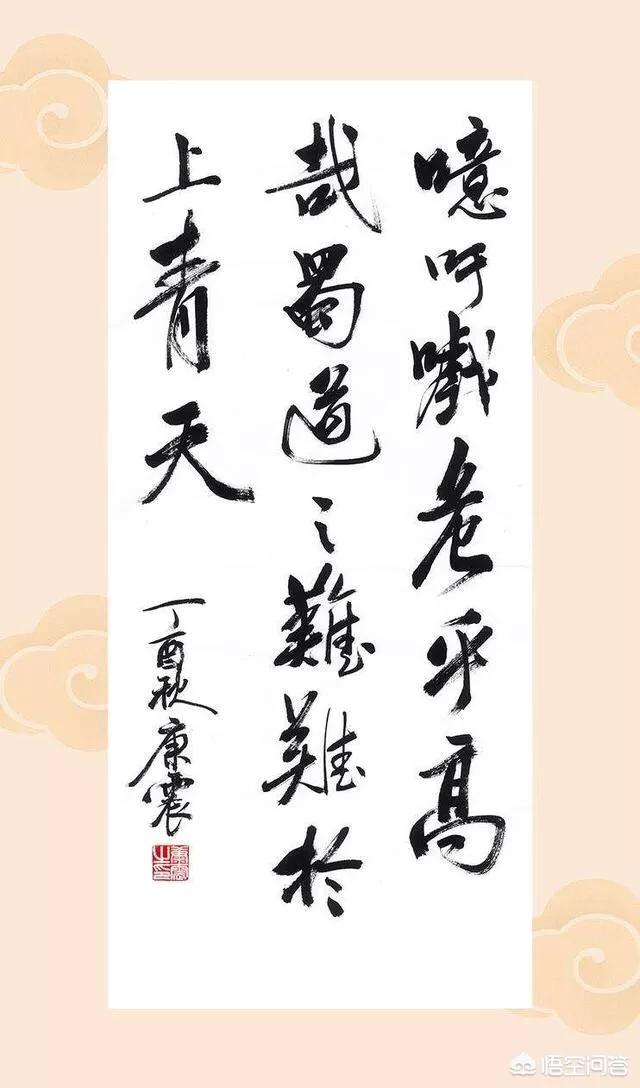 噫吁嚱危乎高
哉蜀道之難難於
上青天
丁酉秋康震
康震之印
悟空问答